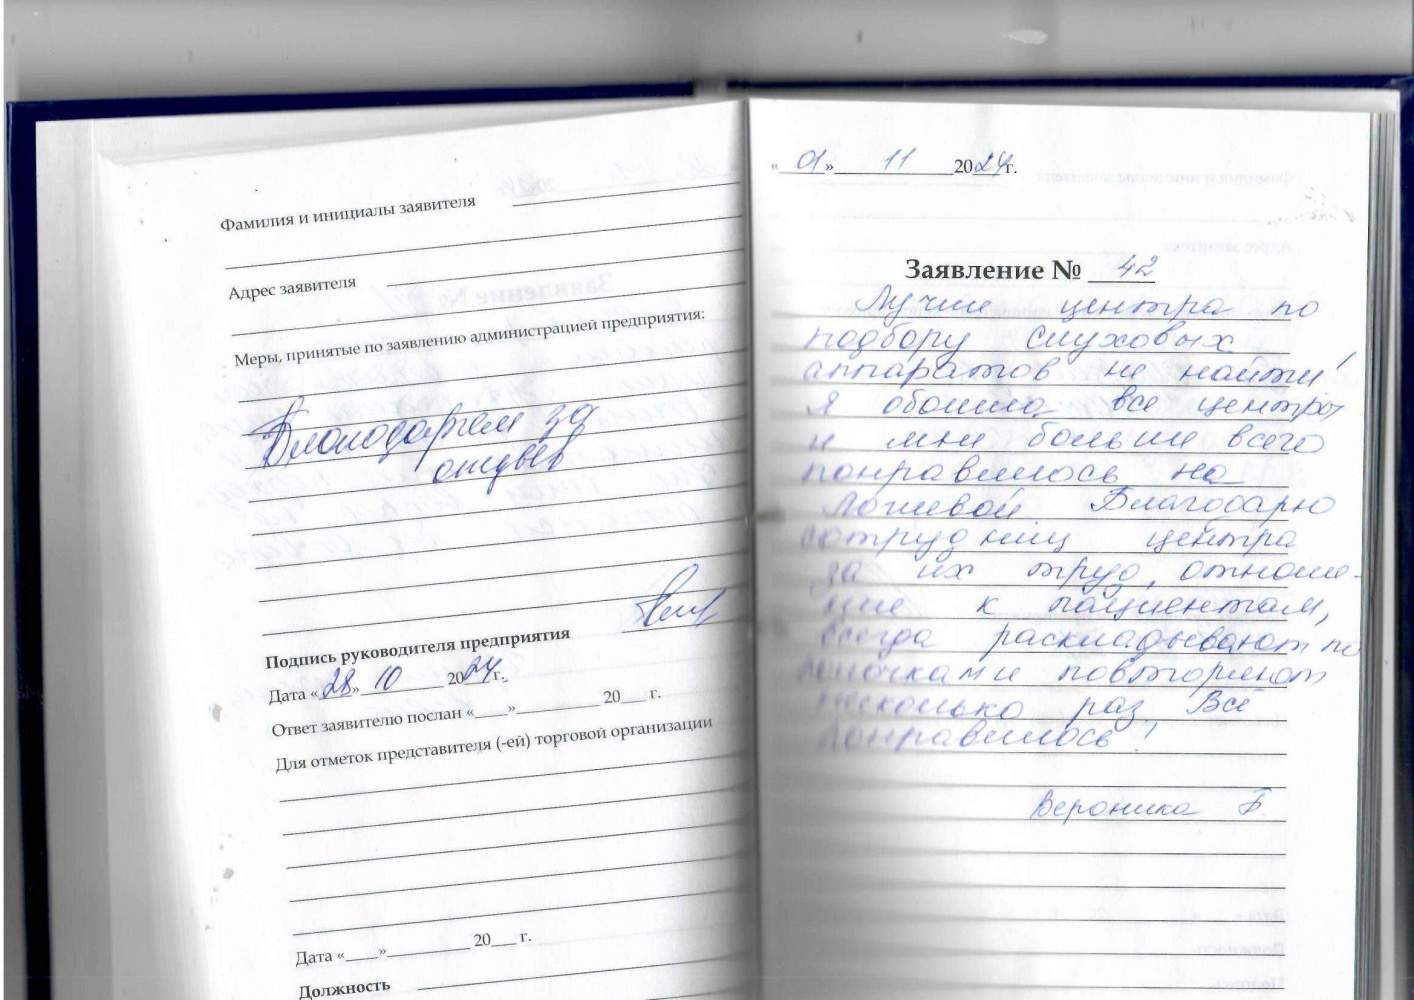 Фамилия и инициалы заявителя
Адрес заявителя
Меры, принятые по заявлению администрацией предприятия:
Благодарим за
отзыв
Подпись руководителя предприятия
Дата «28» 10 2024г.
Ответ заявителю послан «____»__________ 20___ г.
Для отметок представителя (-ей) торговой организации
Дата «____»__________ 20___ г.
Должность
«01» 11 2024г.
Заявление № 42
Лучше центра по
подбору слуховых
аппаратов не найти!
Я обошла все центры
и мне больше всего
понравилось на
Благодарю
сотрудниц центра
за их труд, отноше-
ние к пациентам,
всегда раскладывают по
полочками повторяют
несколько раз. Всё
понравилось!
Вероника Б.